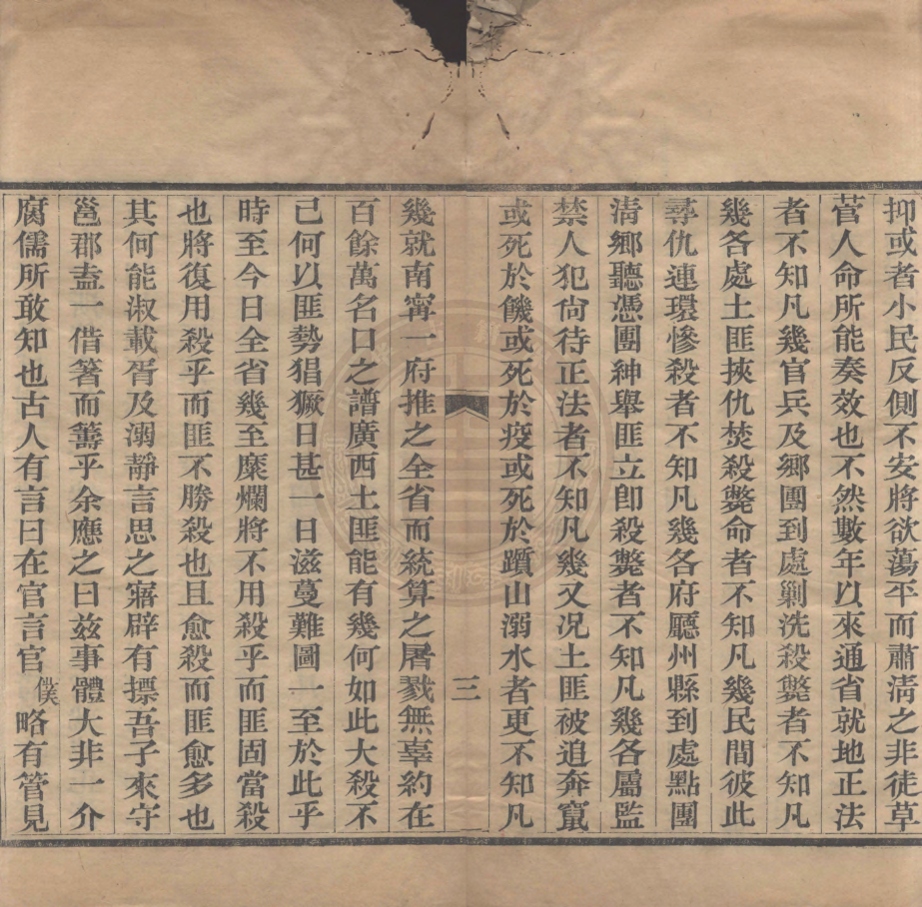 抑或者小民反側不安將欲蕩平而肅清之非徒草
菅人命所能奏效也不然數年以來通省就地正法
者不知凡幾官兵及鄉團到處剿洗殺斃者不知凡
幾各處土匪挾仇焚殺斃命者不知凡幾民間彼此
尋仇連環慘殺者不知凡幾各府廳州縣到處點團
清鄉聽憑團紳舉匪立卽殺斃者不知凡幾各屬監
禁人犯尙待正法者不知凡幾又况土匪被追奔竄
或死於饑或死於疫或死於躓山溺水者更不知凡
三
幾就南甯一府推之全省而統算之屠戮無辜約在
百餘萬名口之譜廣西土匪能有幾何如此大殺不
已何以匪勢猖獗日甚一日滋蔓難圖一至於此乎
時至今日全省幾至糜爛將不用殺乎而匪固當殺
也將復用殺乎而匪不勝殺也且愈殺而匪愈多也
其何能淑載胥及溺靜言思之寤辟有摽吾子來守
邕郡盍一借箸而籌乎余應之曰兹事體大非一介
腐儒所敢知也古人有言曰在官言官僕略有管見